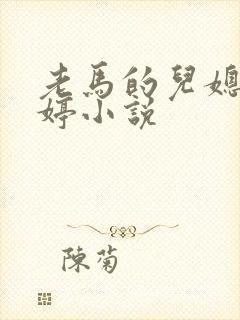 老馬的兒媳
婷小説
陳菊